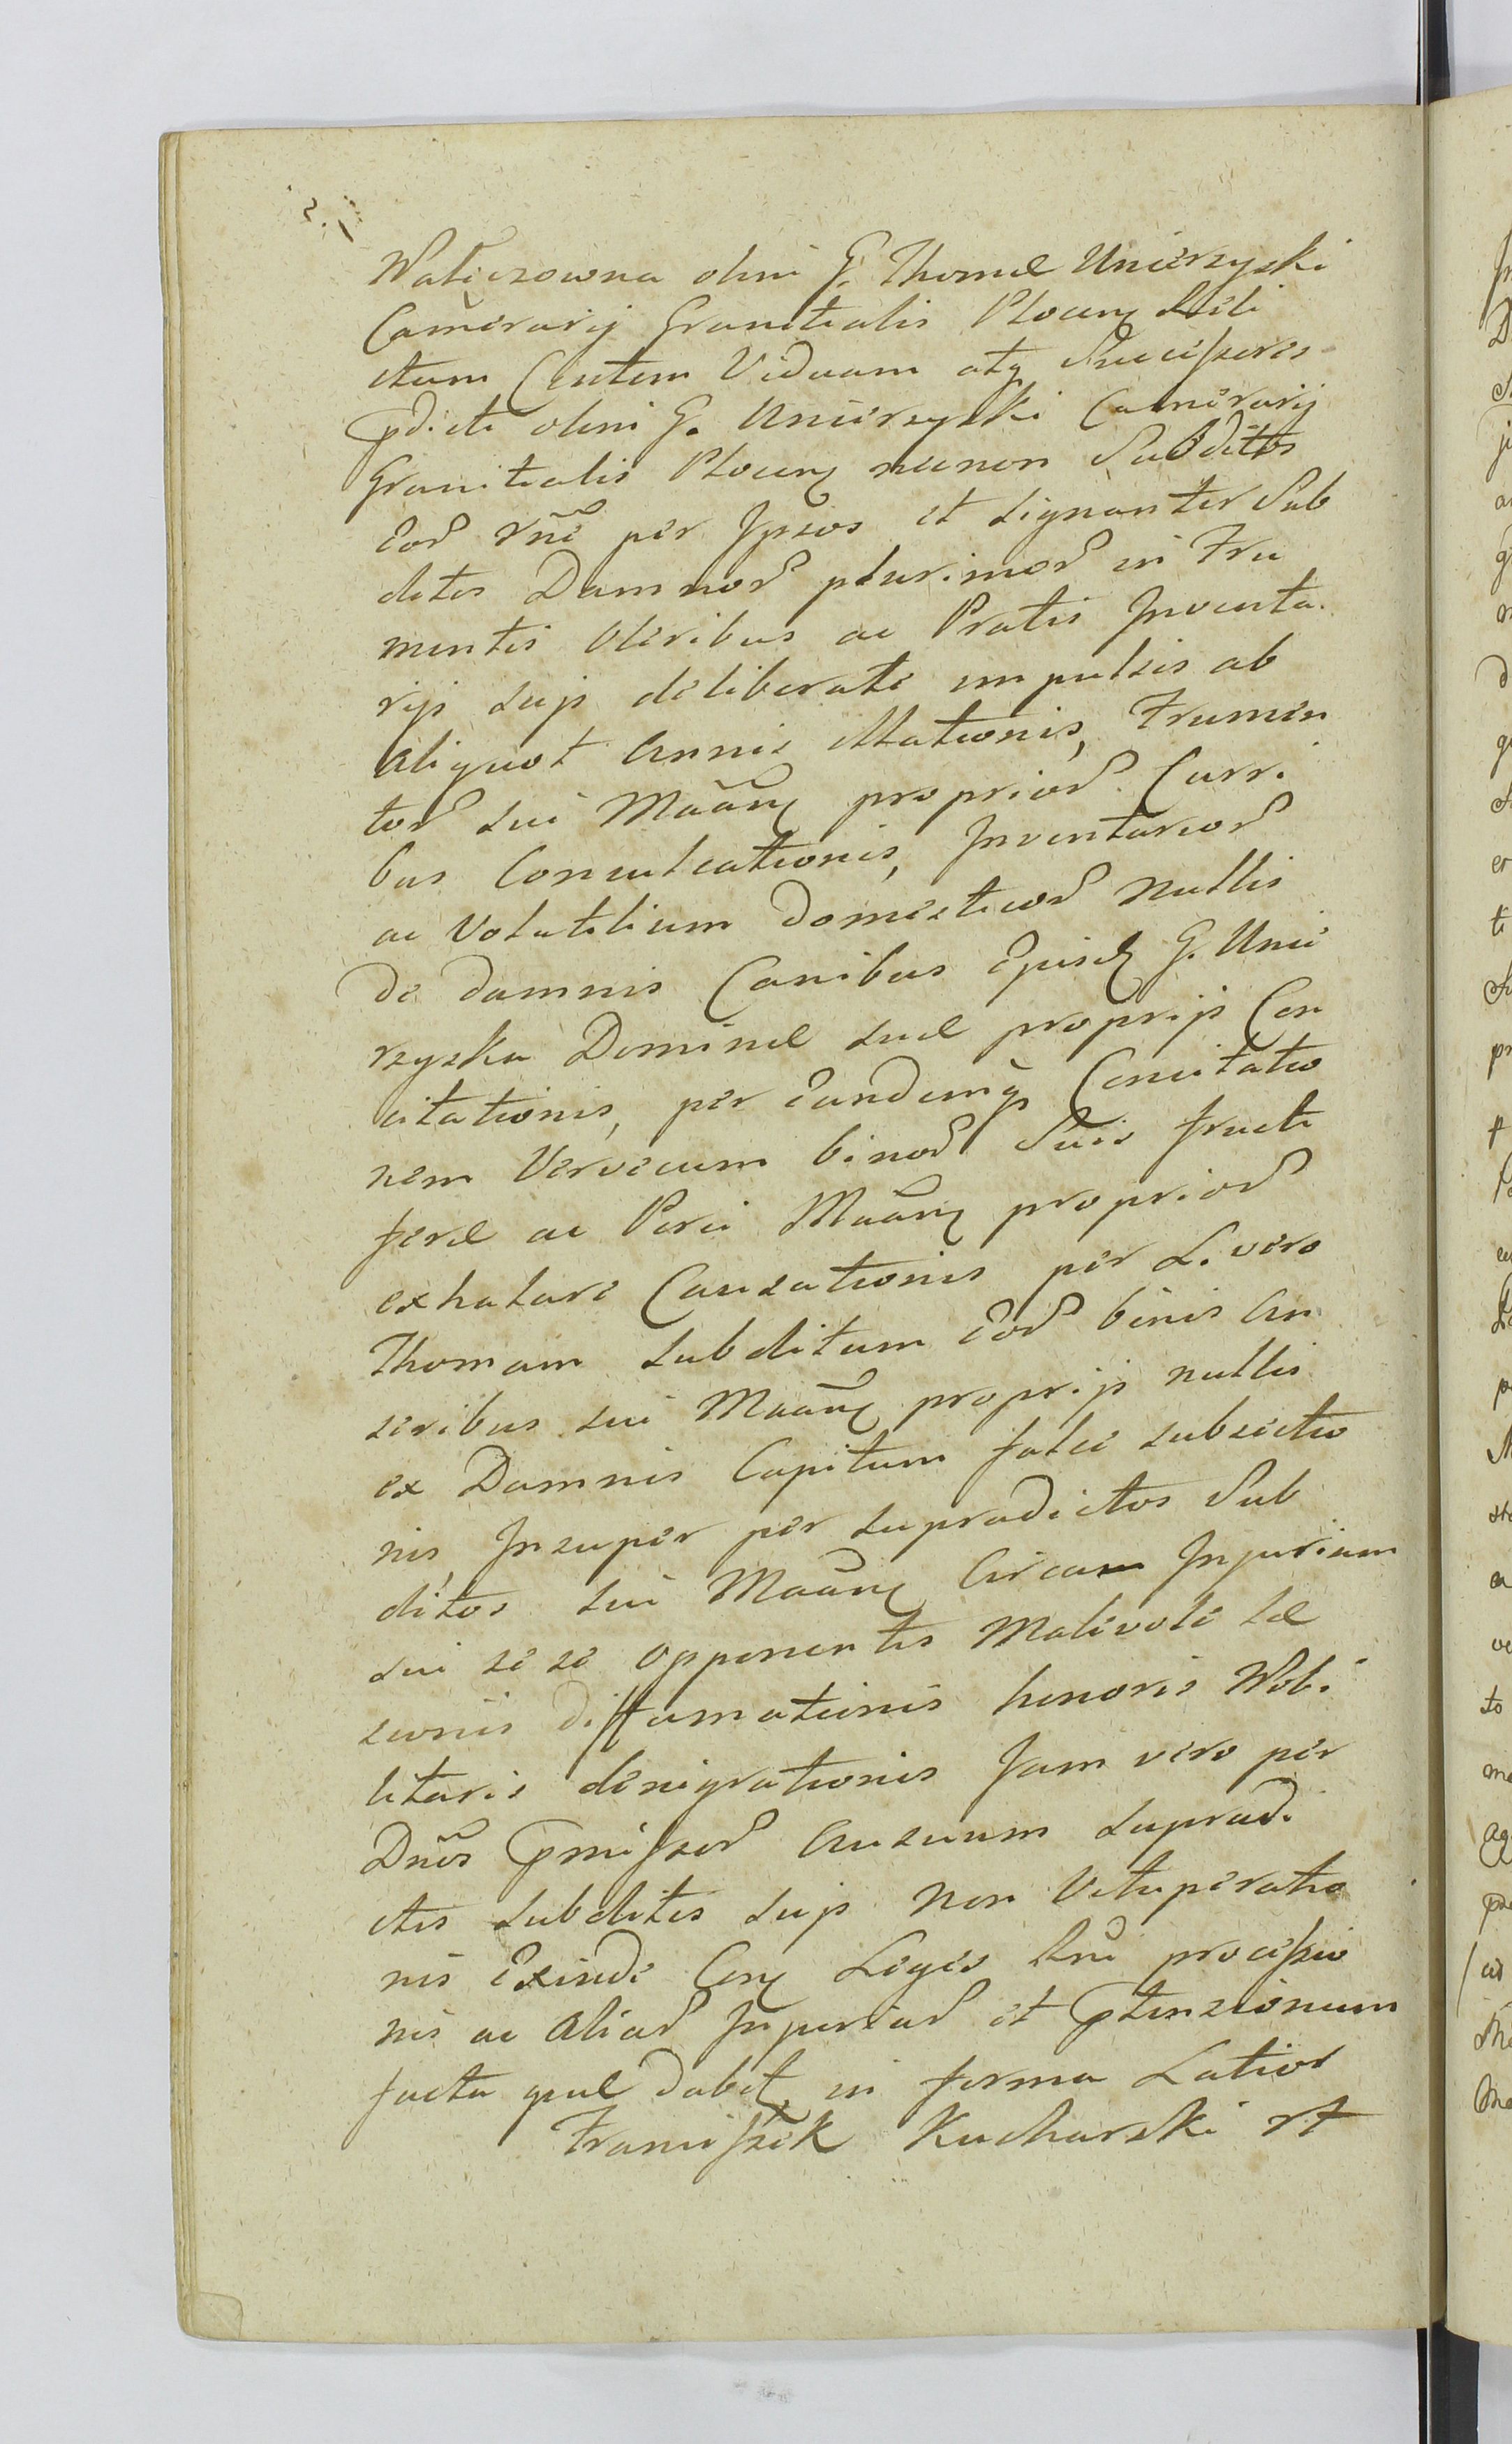 2.
Waliczowna olim G. Thomæ Unierzyski
Camerarij Granitialis Plocen Reli
ctam Coniutem Viduam atq Successores
pdicti olim G. Unierzyski Camerarij
Granitialis Plocen necnon Subditos
Eor rnẽ per Ipsos et signanter Sub
ditos Damnor plurimor in Fru
mentis Oleribus ac Pratis Inventa
rijs suis deliberate impulsis ab
aliquot Annis illationis, Frumen
tor sui Maãn proprior Curri
bus Conculcationis, Inventarior
ac Volatilium Domesticor Nullis
de damnis Canibus G. Unie
rzyska Dominæ suæ proprijs Con
citationis, per Eandemq Concitatio
nem Vervecum binor Suis fructi
feræ ac Porci Maãn proprior
exhalare Causationis per L. vero
Thomam subditum Eor binis An
seribus sui Maãn proprijs nullis
ex Damnis Capitum falce subsectio
nis, Insuper per supradictos Sub
ditos sui Maãn Circam Injuriam
sui se se opponentis Malevole Læ
sionis diffamationis honoris Nobi
litaris denigrationis Jam vero per
Dños pmissor Ausuum supradi
ctis subditis suis non Vituperatio
nis Exinde Con Leges Rni processio
nis ac Aliar Injuriar et Ptensionum
facta quæ dabit in forma Latior
Franciszek Kucharski